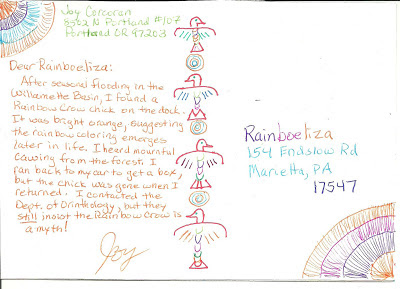 Joy Corcoran
8502 N Portland #107
Portland OR 97203
Dear Rainboeliza:
After seasonal flooding in the
Willamette Basin, I found a
Rainbow Crow chick on the dock.
It was bright orange, suggesting
the rainbow coloring emerges
later in life. I heard mournful
cawing from the forest. I
ran back to my car to get a box,
but the chick was gone when I
returned. I contacted the
Dept. of Orinthology, but they
still insist the Rainbow Crow is
a myth!
Joy
Rainboeliza
154 Endslow Rd
Marietta, PA
17547